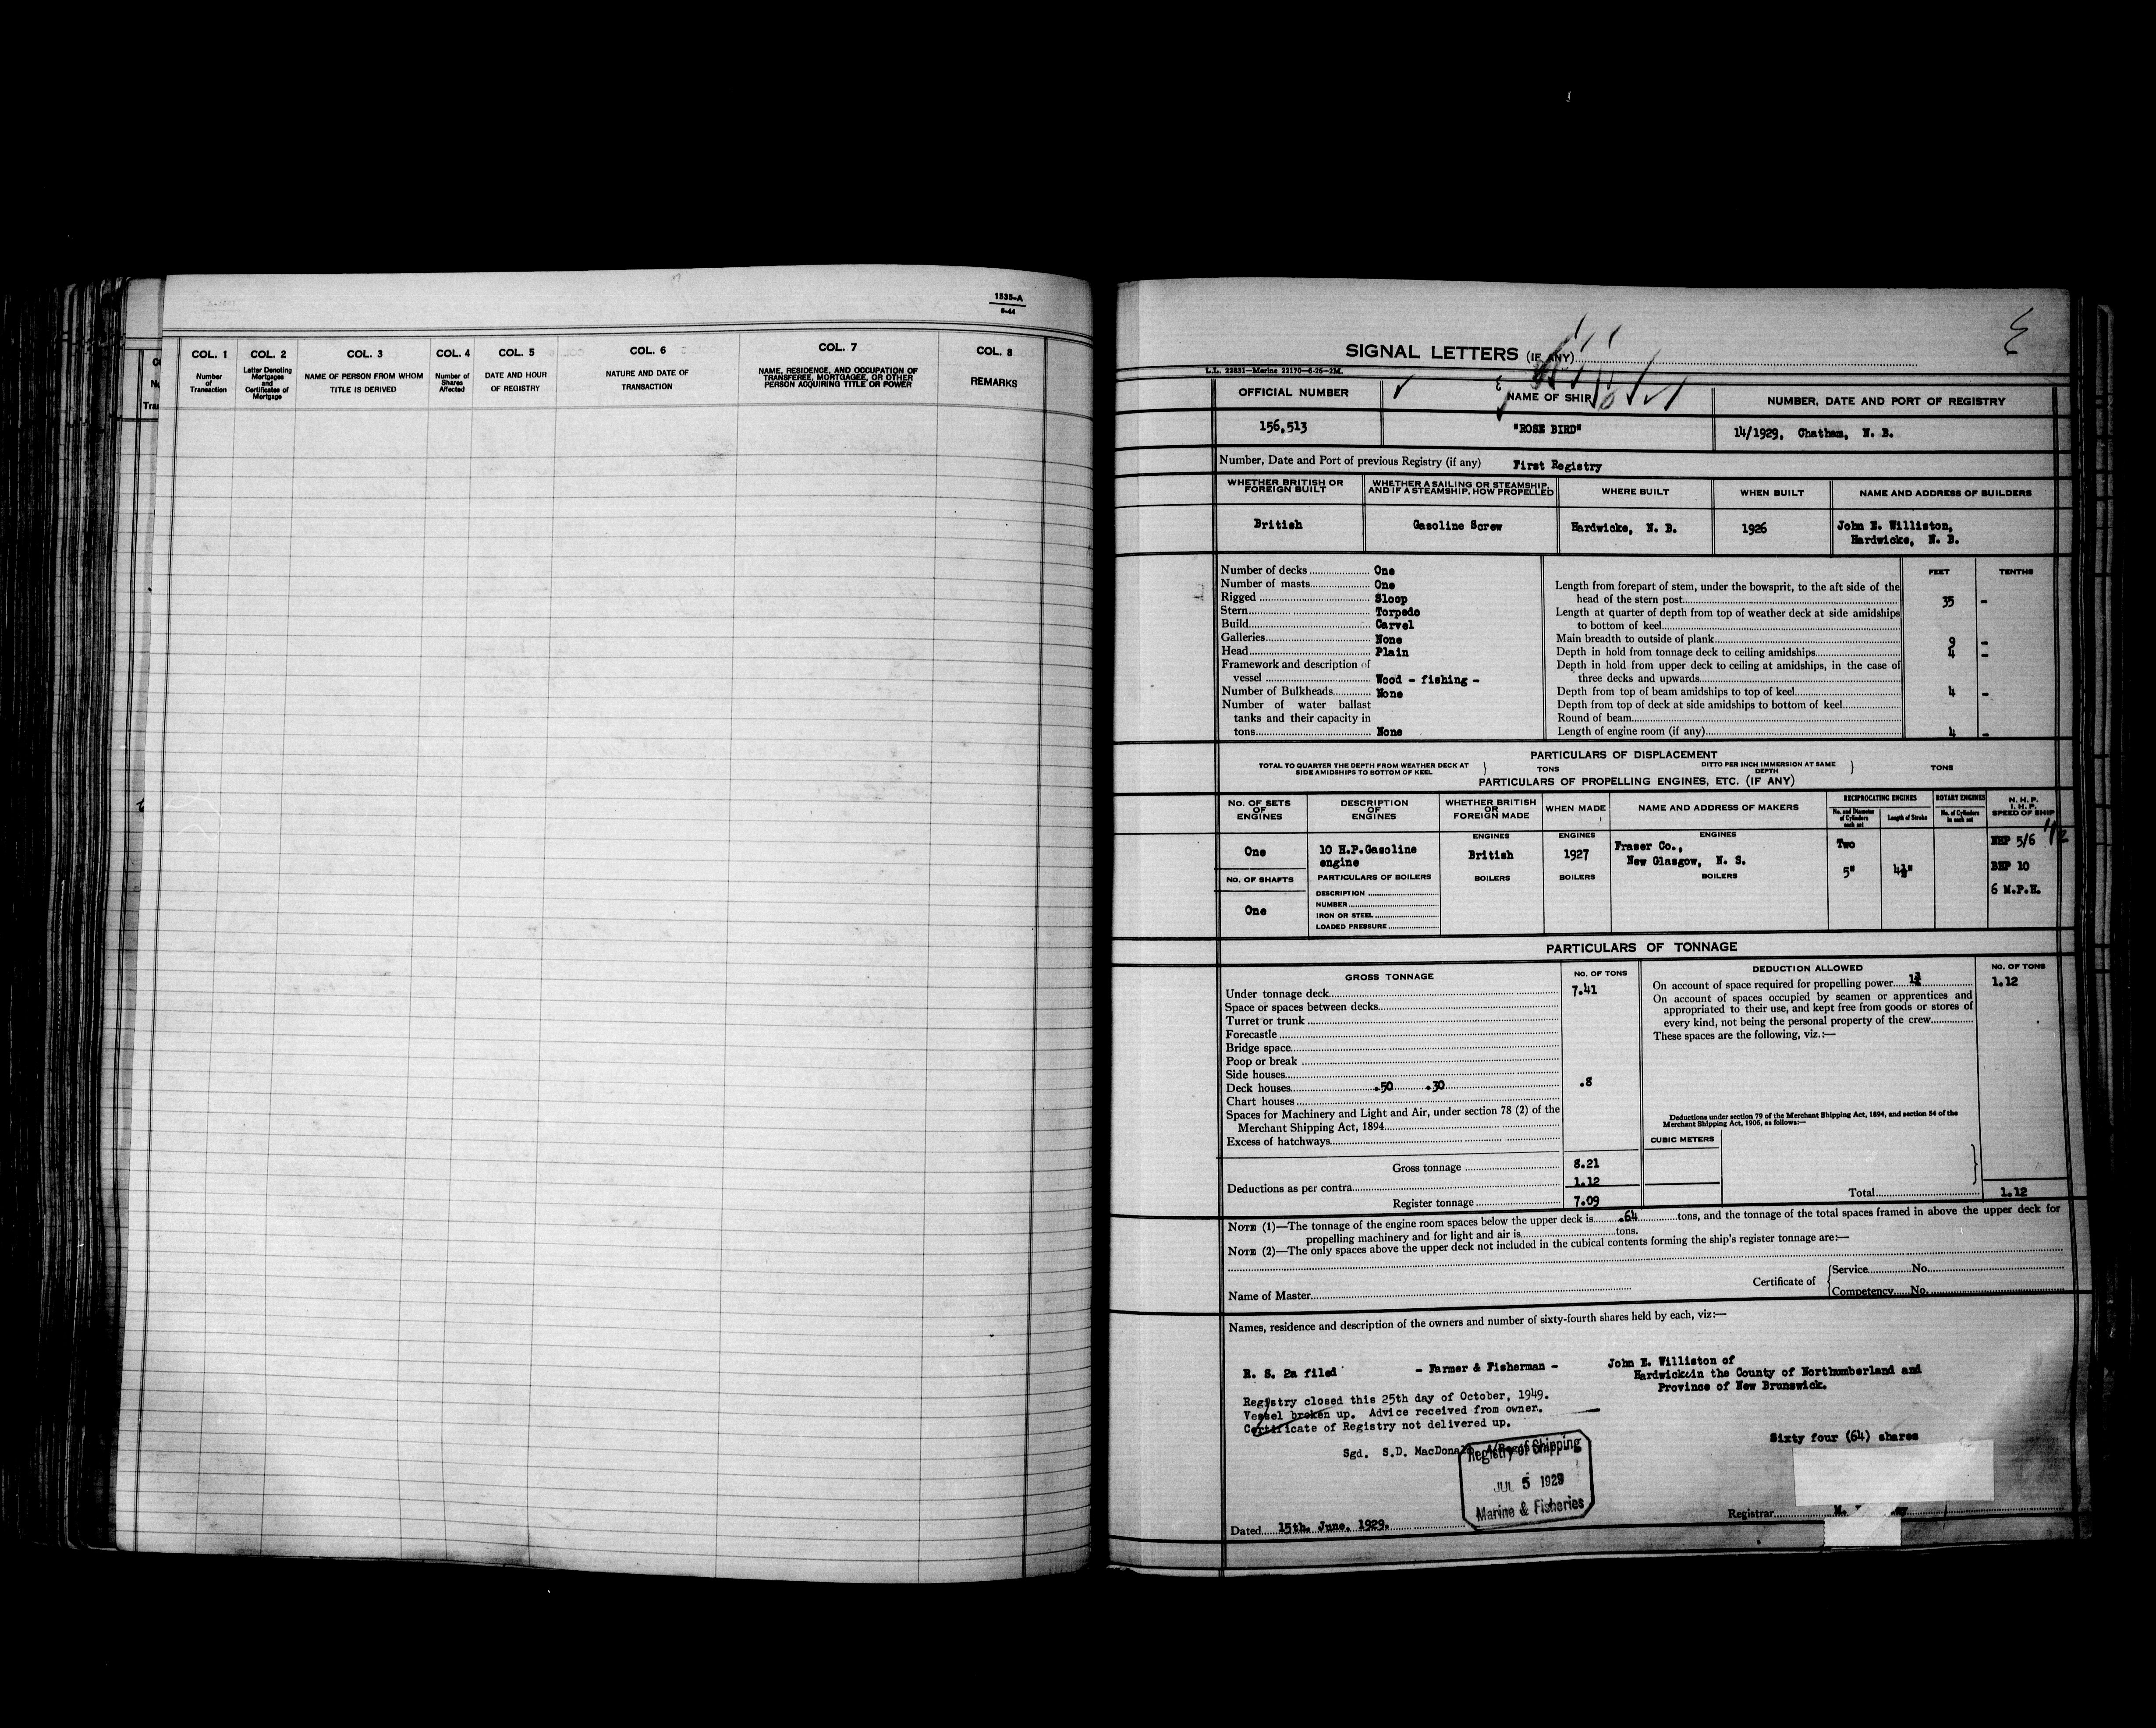 1535-A
6-44
COL. 1
Number
of
Transaction
COL. 2
Letter Denoting
Mortgages
and
Certificates of
Mortgage
COL. 3
NAME OF PERSON FROM WHOM
TITLE IS DERIVED
COL. 4
Number of
Shares
Affected
COL. 5
DATE AND HOUR
OF REGISTRY
COL. 6
NATURE AND DATE OF
TRANSACTION
COL. 7
NAME, RESIDENCE, AND OCCUPATION OF
TRANSFEREE, MORTGAGEE, OR OTHER
PERSON ACQUIRING TITLE OR POWER
COL. 8
REMARKS
SIGNAL LETTERS (IF ANY)
L.L. 22831—Marine 22170—6-26—2M.
OFFICIAL NUMBER
NAME OF SHIP
NUMBER, DATE AND PORT OF REGISTRY
156,513
"ROSE BIRD"
14/1929, Chatham, N. B.
Number, Date and Port of previous Registry (if any) First Registry
WHETHER BRITISH OR
FOREIGN BUILT
WHETHER A SAILING OR STEAMSHIP,
AND IF A STEAMSHIP, HOW PROPELLED
WHERE BUILT
WHEN BUILT
NAME AND ADDRESS OF BUILDERS
British
Gasoline Screw
Hardwicke, N. B.
1926
John E. Williston,
Hardwicke, N. B.
Number of decks One
Number of masts One
Rigged Sloop
Stern Torpedo
Build Carvel
Galleries None
Head Plain
Framework and description of
vessel Wood - fishing -
Number of Bulkheads None
Number of water ballast
tanks and their capacity in
tons None
FEET
TENTHS
Length from forepart of stem, under the bowsprit, to the aft side of the
head of the stern post 35 -
Length at quarter of depth from top of weather deck at side amidships
to bottom of keel
Main breadth to outside of plank 9 -
Depth in hold from tonnage deck to ceiling amidships 4 -
Depth in hold from upper deck to ceiling at amidships, in the case of
three decks and upwards
Depth from top of beam amidships to top of keel 4 -
Depth from top of deck at side amidships to bottom of keel
Round of beam
Length of engine room (if any) 4 -
PARTICULARS OF DISPLACEMENT
TOTAL TO QUARTER THE DEPTH FROM WEATHER DECK AT
SIDE AMIDSHIPS TO BOTTOM OF KEEL
TONS
DITTO PER INCH IMMERSION AT SAME
DEPTH
TONS
PARTICULARS OF PROPELLING ENGINES, ETC. (IF ANY)
No. OF SETS
OF
ENGINES
DESCRIPTION
OF
ENGINES
WHETHER BRITISH
OR
FOREIGN MADE
WHEN MADE
NAME AND ADDRESS OF MAKERS
RECIPROCATING ENGINES
No. and Diameter
of Cylinders
each set
Length of Stroke
ROTARY ENGINES
No. of Cylinders
in each set
N. H. P.
I. H. P.
SPEED OF SHIP
ENGINES
ENGINES
ENGINES
One
10 H.P.Gasoline
engine
British
1927
Fraser Co.,
New Glasgow, N. S.
Two
5"
4½"
NHP 5/6
BHP 10
6 M.P.H.
No. OF SHAFTS
One
PARTICULARS OF BOILERS
BOILERS
BOILERS
BOILERS
DESCRIPTION
NUMBER
IRON OR STEEL
LOADED PRESSURE
PARTICULARS OF TONNAGE
GROSS TONNAGE
NO. OF TONS
Under tonnage deck 7.41
Space or spaces between decks
Turret or trunk
Forecastle
Bridge space
Poop or break
Side houses
Deck houses .50 .30 .8
Chart houses
Spaces for Machinery and Light and Air, under section 78 (2) of the
Merchant Shipping Act, 1894
Excess of hatchways
Gross tonnage 8.21
Deductions as per contra 1.12
Register tonnage 7.09
DEDUCTION ALLOWED
NO. OF TONS
On account of space required for propelling power 1.12
On account of spaces occupied by seamen or apprentices and
appropriated to their use, and kept free from goods or stores of
every kind, not being the personal property of the crew
These spaces are the following, viz.:—
Deductions under section 79 of the Merchant Shipping Act, 1894, and section 54 of the
Merchant Shipping Act, 1906, as follows:—
CUBIC METERS
Total 1.12
NOTE (1)—The tonnage of the engine room spaces below the upper deck is .64 tons, and the tonnage of the total spaces framed in above the upper deck for
propelling machinery and for light and air is tons.
NOTE (2)—The only spaces above the upper deck not included in the cubical contents forming the ship's register tonnage are:—
Name of Master
Certificate of
Service No.
Competency No.
Names, residence and description of the owners and number of sixty-fourth shares held by each, viz:—
R. S. 2a filed
- Farmer & Fisherman -
John E. Williston of
Hardwick in the County of Northumberland and
Province of New Brunswick.
Registry closed this 25th day of October, 1949.
Vessel broken up. Advice received from owner.
Certificate of Registry not delivered up.
Sgd. S.D. MacDonald
Sixty four (64) shares
Registry of Shipping
JUL 5 1929
Marine & Fisheries
Dated 15th. June, 1929.
Registrar